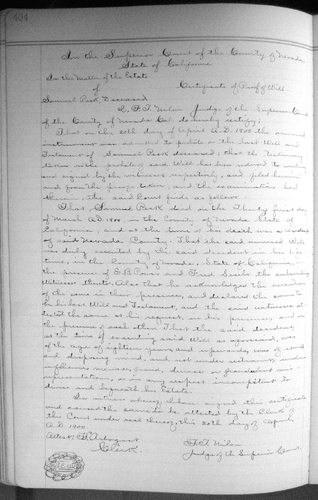 404
In the Superior Court of the County of Nevada
State of California
In the Matter of the Estate
of Certificate of Proof of Will
Samuel Park, Deceased
I, F. T. Nilon Judge of the Superior Court
of the County of Nevada Cal do hereby certify;
That on the 20th day of April A.D. 1900 the annexed
instrument was admitted to probate as the last Will and
Testament of Samuel Park deceased; that the testimony
taken in the probate of said Will has been reduced to writing
and signed by the witnesses respectively, and filed herein
and from the proofs taken, and the examination had
therein, the said Court finds as follows:
That Samuel Park died on the Thirty first day
of March A.D. 1900 in the County of Nevada State of
California, and at the time of his death was a resident
of said Nevada County. That the said annexed Will
was duly executed by the said decedent in his life
time, in the County of Nevada, State of California, in
the presence of and Fred Searls the subscribing
witnesses thereto. Also that he acknowledged the execution
of the same in their presence, and declared the same to
be his last Will and Testament, and the said witnesses at-
tested the same at his request, in his presence, and in
the presence of each other. That the said decedent
at the time of executing said Will as aforesaid, was
of the age of eighteen years and upwards, was of sound
and disposing mind, and not under restraint, undue
influence menace, fraud, duress or fraudulent mis
representation, or in any respect incompetent to
devise and bequeath his Estate.
In witness whereof, I have signed this certificate
and caused the same to be attested by the Clerk of
the Court under seal thereof, this 20th day of April
A.D. 1900. F. T. Nilon
Attest Judge of the Superior Court
Clerk